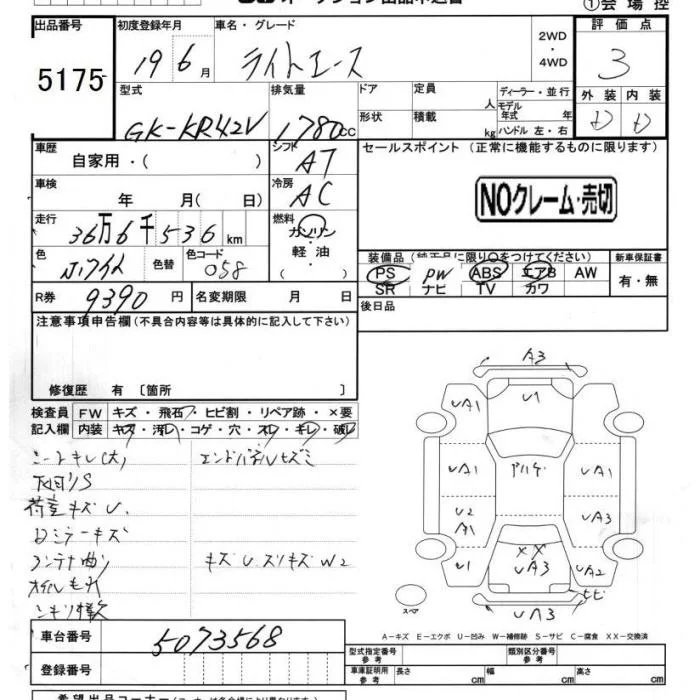 ①会場控
出品番号 初度登録年月 車名・グレード 2WD ・ 4WD 評価点
5175 19 6月 ライトエース 3
型式 排気量 ドア 定員 人 ディーラー・並行 外装 内装
GK-KR42V 1780cc 形状 積載 kg モデル年式 年 D D
ハンドル 左・右
車歴 自家用・( ) シフト AT セールスポイント (正常に機能するものに限ります)
車検 年 月( 日) 冷房 AC NOクレーム・売切
走行 36万6千536km 燃料 ガソリン
軽油
( )
色 色替 色コード 058 装備品 (純正品に限り○をつけてください) 新車保証書
PS PW ABS エアB AW 有・無
SR ナビ TV カワ
R券 9390円 名変期限 月 日 後日品
注意事項申告欄(不具合内容等は具体的に記入して下さい)
修復歴 有 [箇所 ]
検査員 FW キズ・飛石・ヒビ割・リペア跡・×要
記入欄 内装 キズ・汚れ・コゲ・穴・スレ・キレ・破レ
シートキレ(大) エンドパネルヒズミ
下回りS
荷室キズU
ロミラーキズ
コンテナ曲り キズUスリキズW2
オイルもれ
A3
UA1 U1
UA1 UA1
U2 A1 UA3
U1 XX UA3 UA2
ヒビ
スペア UA3
A-キズ E-エクボ U-凹み W-補修跡 S-サビ C-腐食 XX-交換済
車台番号 5073568 型式指定番号 参考 類別区分番号 参考
登録番号 車庫証明用 参考 長さ cm 幅 cm 高さ cm
希望出品コーナー